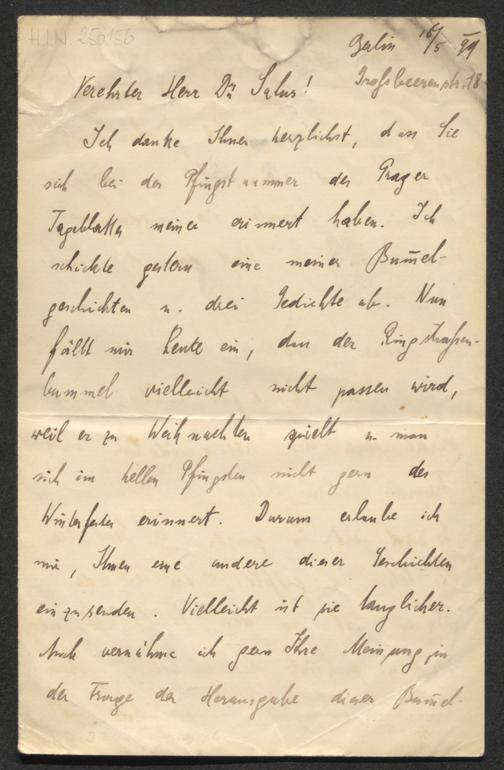 H.I.N. 256156
Berlin 16/5 99
Großbeerenstr. 18
Verehrter Herr Dr. Salus!
Ich danke Ihnen herzlichst, dass Sie
sich bei der Pfingstnummer des Prager
Tageblattes meiner erinnert haben. Ich
schickte gestern eine meiner Bum̅el-
geschichten u. drei Gedichte ab. Nun
fällt mir heute ein, dass der Ringstraßen-
bummel vielleicht nicht passen wird,
weil er zu Weihnachten spielt u. man
sich im hellen Pfingsten nicht gern des
Winterfestes erinnert. Darum erlaube ich
mir, Ihnen eine andere dieser Geschichten
einzusenden. Vielleicht ist sie tauglicher.
Auch vernähme ich gern Ihre Meinung in
der Frage der Herausgabe dieser Bum̅el-